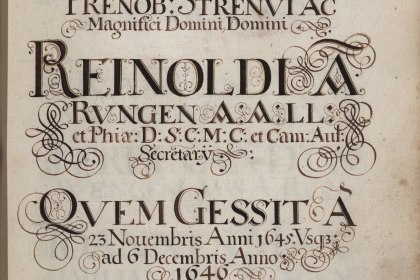 PRENOB: STRENVI AC
Magnifici Domini, Domini
REINOLDI Ā
RVNGEN A.A.LL:
et Phiæ: D: S: C: M: C: et Cam: Aul:
Secretarÿ:
QVEM GESSIT Ā
23 Nouembris Anni 1645. Vsq3:
ad 6 Decembris Anno:
1646